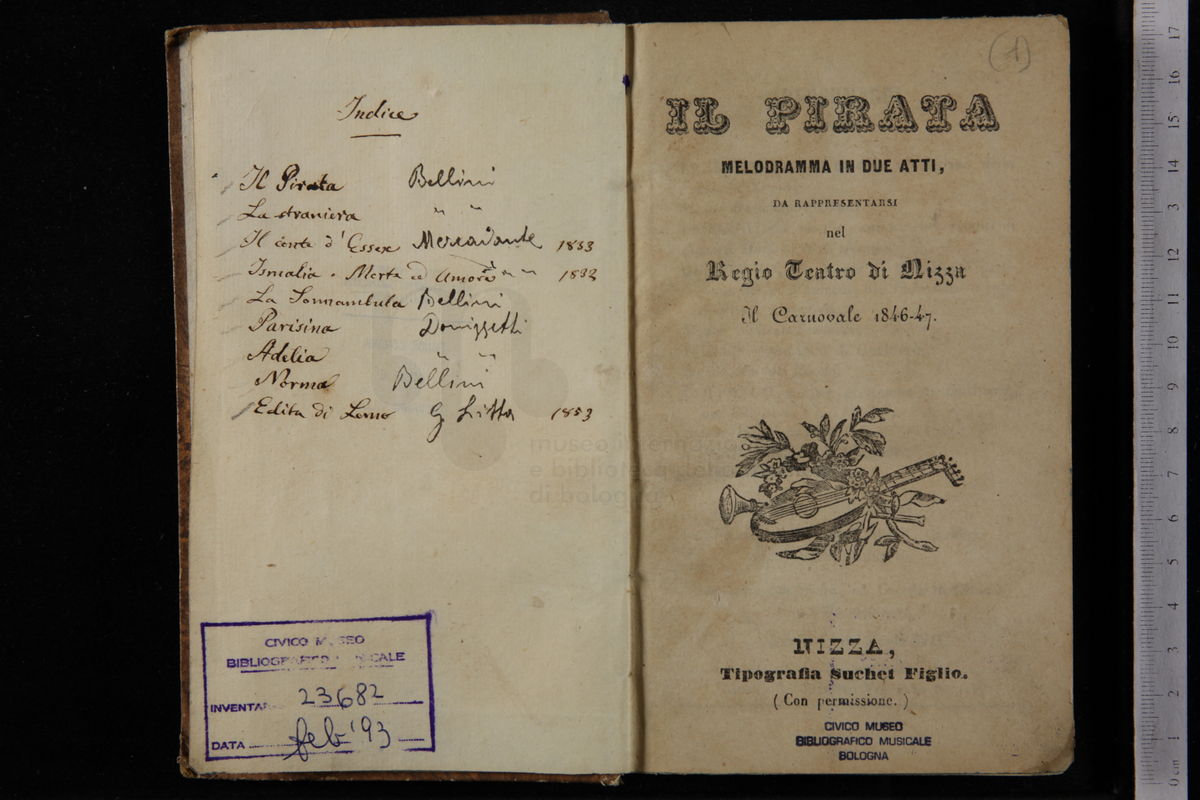 Indice
Il Pirata Bellini
La straniera " "
Il conte d'Essex Mercadante 1833
Ismalia o Morte ed Amore " " 1832
La Sonnambula Bellini
Parisina Donizzetti
Adelia " "
Norma Bellini
Edita di Lorno G Litta 1853
museo internazionale
e biblioteca della
di bologna
CIVICO MUSEO
BIBLIOGRAFICO MUSICALE
INVENTAR 23682
DATA feb '93
(1)
IL PIRATA
MELODRAMMA IN DUE ATTI,
DA RAPPRESENTARSI
nel
Regio Teatro di Nizza
Il Carnovale 1846-47.
NIZZA,
Tipografia Suchet Figlio.
(Con permissione.)
CIVICO MUSEO
BIBLIOGRAFICO MUSICALE
BOLOGNA
0 cm 1 2 3 4 5 6 7 8 9 10 11 12 13 14 15 16 17